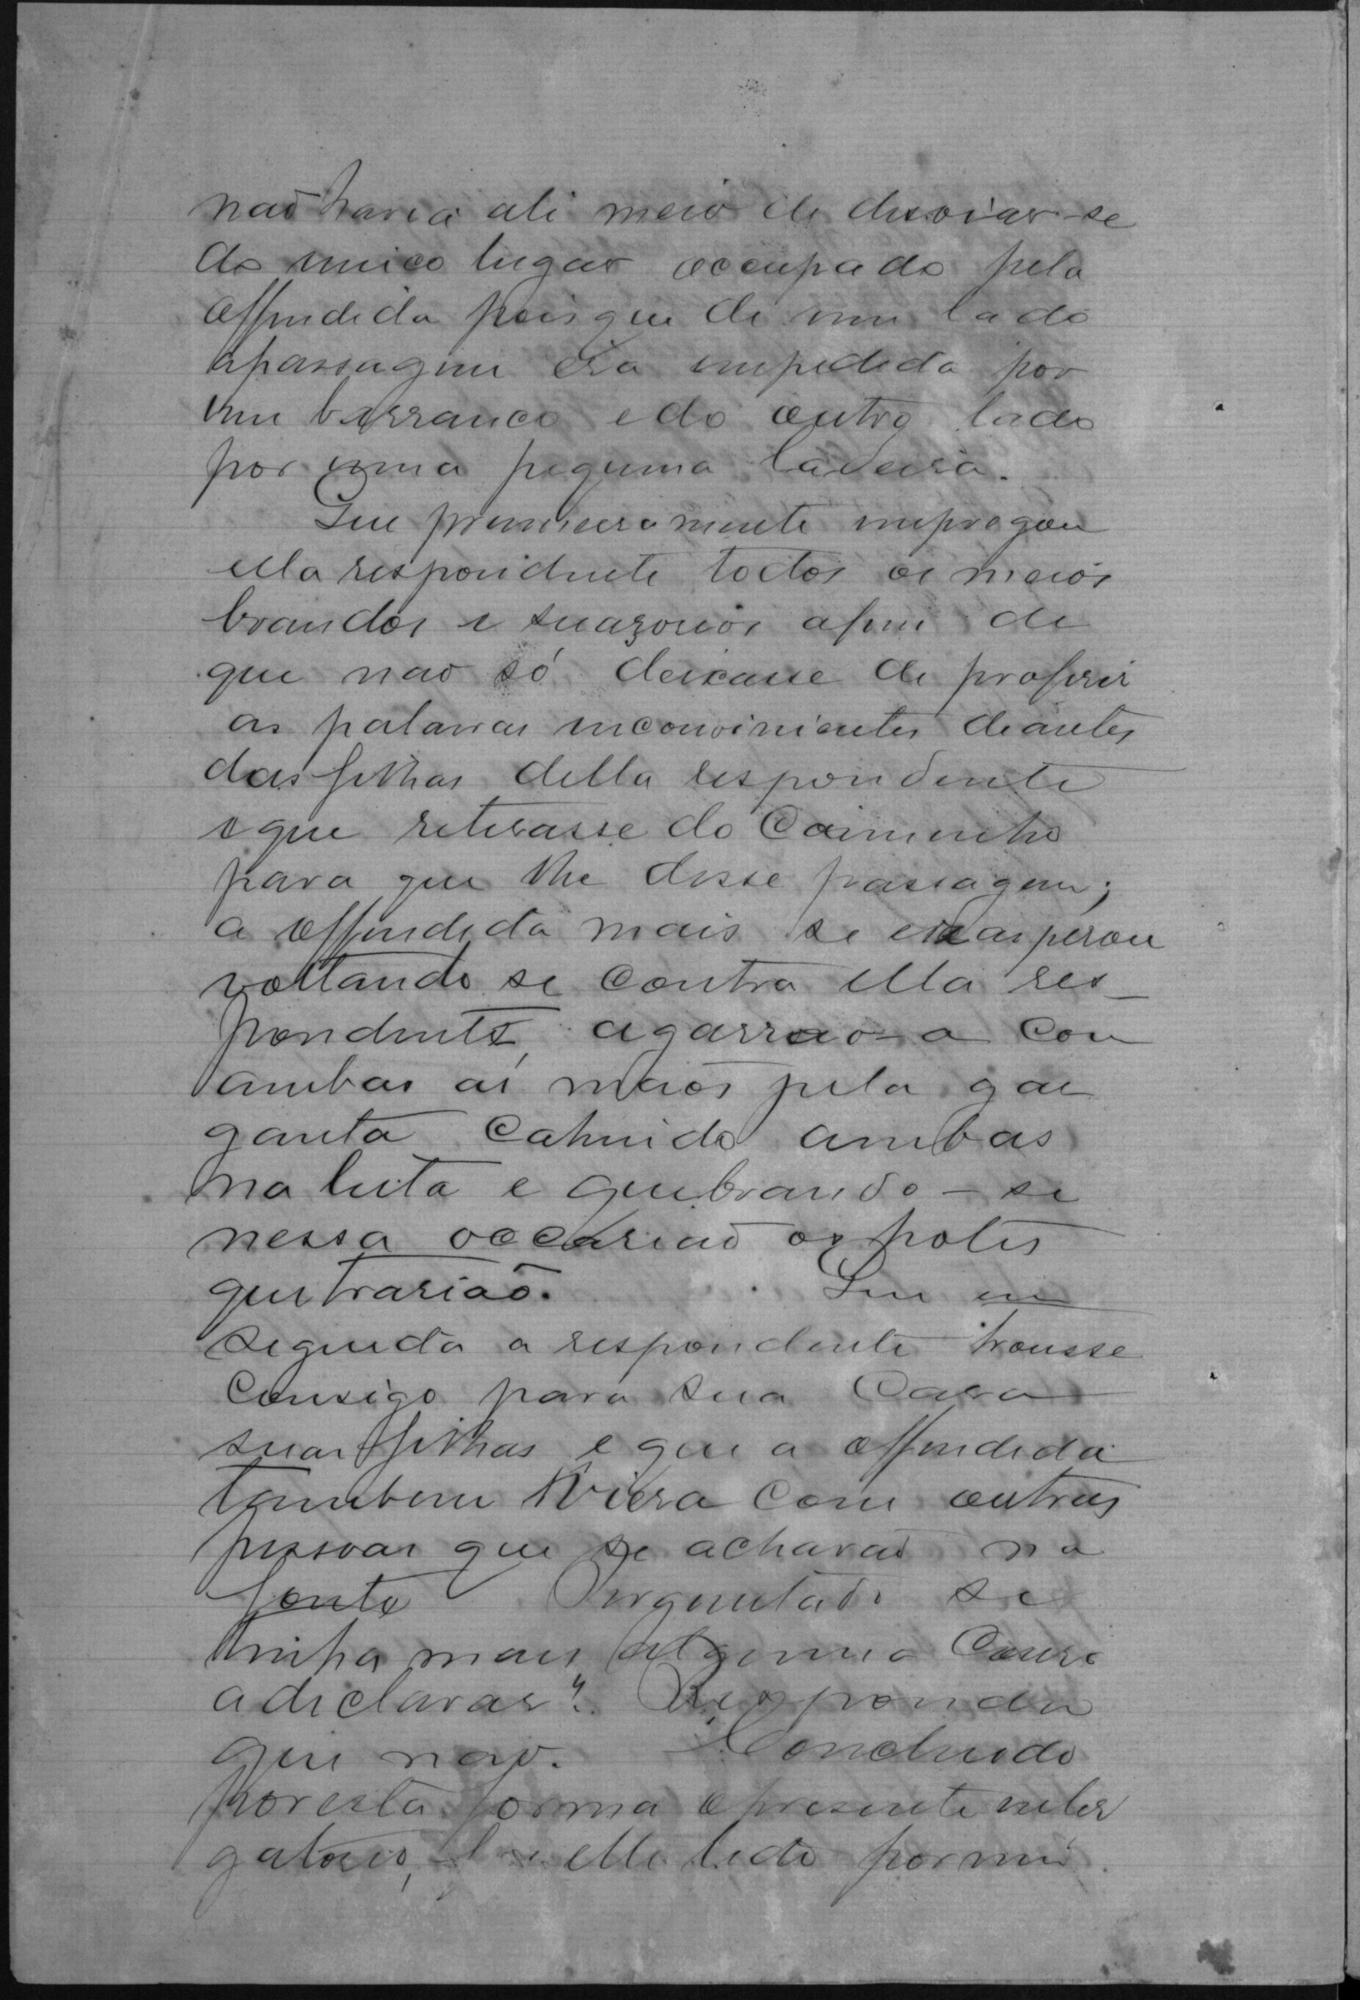 não havia ali meio de desviar-se
do unico lugar occupado pela
offendida pois que de um lado
a passagem era impedida por
um barranco e do outro lado
por uma pequena ladeira.
Que primeiramente impregou
ella respondente todos os meios
brandos e suazorios afim de
que não só deixasse de proferir
as palavras inconvinientes deantes
das filhas della respondente
e que retirasse do Caminho
para que lhe desse passagem;
a offendida mais se exasperou
voltando se contra ella res-
pondente, agarrao-a com
ambas as mãos pela gar
ganta cahindo ambas
na luta e quebrando-se
nessa occasiaõ os potes
que trasião. Que em
seguida a respondente trousse
consigo para sua Casa
suas filhas e que a offendida
tambem viera com outras
pessoas que se achavaõ na
fonte Perguntado se
tinha mais alguma Cousa
a declarar? Respondeu
que não. Concluido
por esta forma o presente inter
gatorio, elle lido por mim